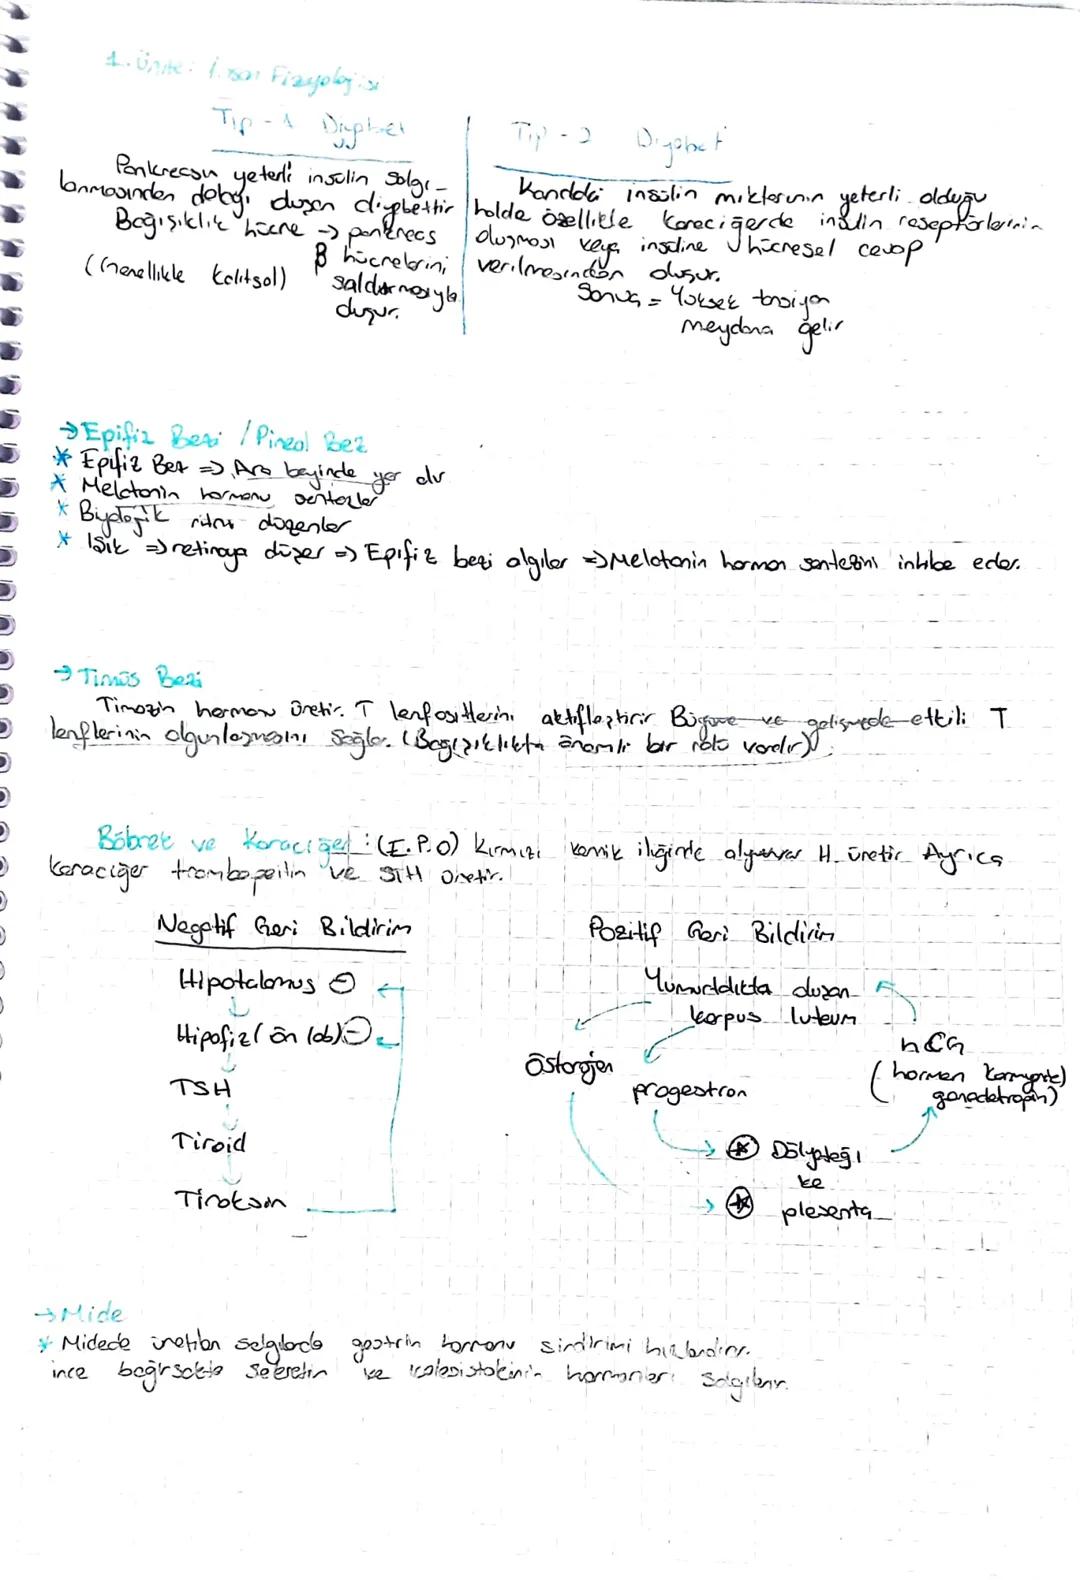 1. Ünite: İnsan Fizyolojisi
Tip - 1 Diyabet
Pankreasın yeterli insülin salgı-
lanmasından dolayı oluşan diyabettir
Bağışıklık hücre -> pankreas
β hücrelerini
(Genellikle kalıtsal) saldırmasıyla
oluşur.
Tip - 2 Diyabet
Kandaki insülin miktarının yeterli olduğu
halde özellikle karaciğerde insülin reseptörlerinin
oluşması veya insüline hücresel cevap
verilmesinden oluşur.
Sonuç = Yüksek tansiyon
meydana gelir
→ Epifiz Bezi / Pineal Bez
* Epifiz Bez => Ara beyinde yer alır
* Melatonin hormonu sentezler
* Biyolojik ritmi düzenler
* Işık => retinaya düşer => Epifiz bezi algılar => Melatonin hormon sentezini inhibe eder.
→ Timüs Bezi
Timozin hormon üretir. T lenfositlerini aktifleştirir Büyüme ve gelişmede etkili T
lenflerinin olgunlaşmasını sağlar. (Bağışıklıkta önemli bir rolü vardır)
Böbrek ve Karaciğer : (E.P.O) Kırmızı kemik iliğinde alyuvar H. üretir Ayrıca
karaciğer trombopoitin ve STH üretir.
Negatif Geri Bildirim
Hipotalamus ⊖
Hipofiz (ön lob) ⊖
TSH
Tiroid
Tiroksin
Pozitif Geri Bildirim
Yumurtalıkta oluşan
korpus luteum
Östrojen
progestron
hCG
(hormon koryonik)
gonadotropin)
Dölyatağı
ve
plesenta
→ Mide
* Midede üretilen salgılarda gastrin hormonu sindirimi hızlandırır.
ince bağırsakta sekretin ve kolesistokinin hormonları salgılanır.